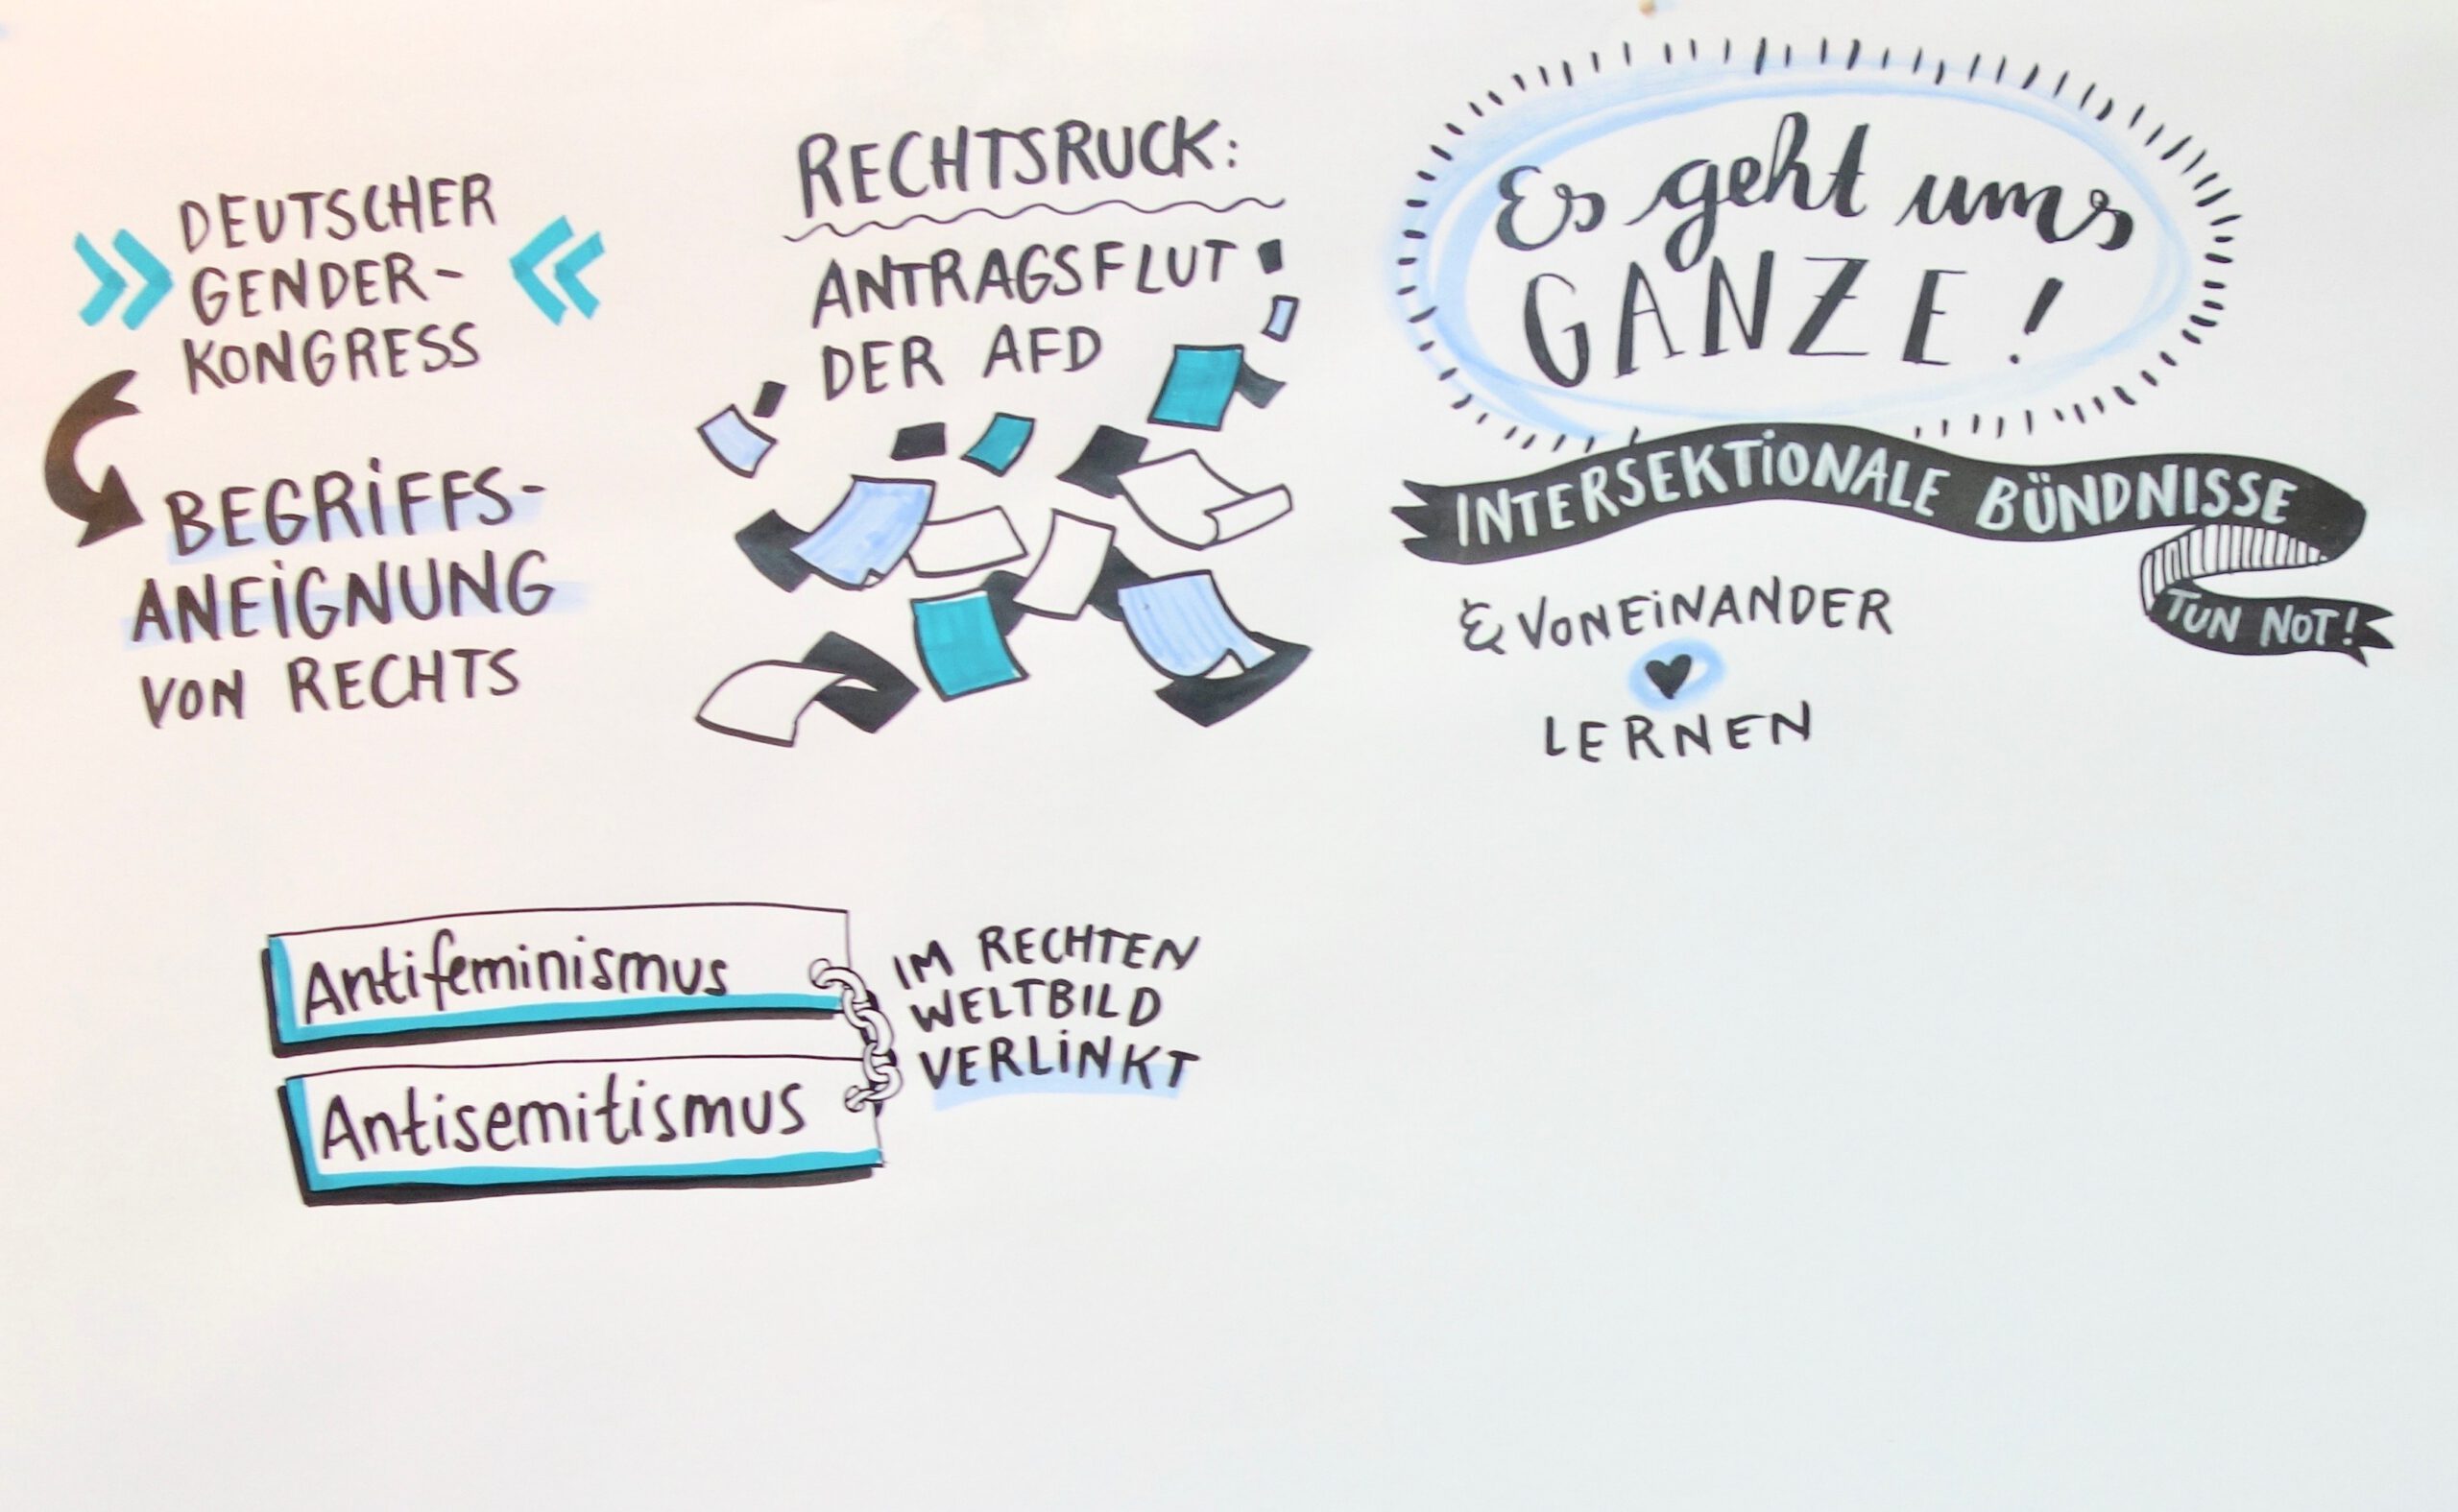 DEUTSCHER
GENDER-
KONGRESS
BEGRIFFS-
ANEIGNUNG
VON RECHTS
RECHTSRUCK:
ANTRAGSFLUT
DER AFD
Es geht ums
GANZE!
INTERSEKTIONALE BÜNDNISSE
TUN NOT!
& VONEINANDER
LERNEN
Antifeminismus
Antisemitismus
IM RECHTEN
WELTBILD
VERLINKT